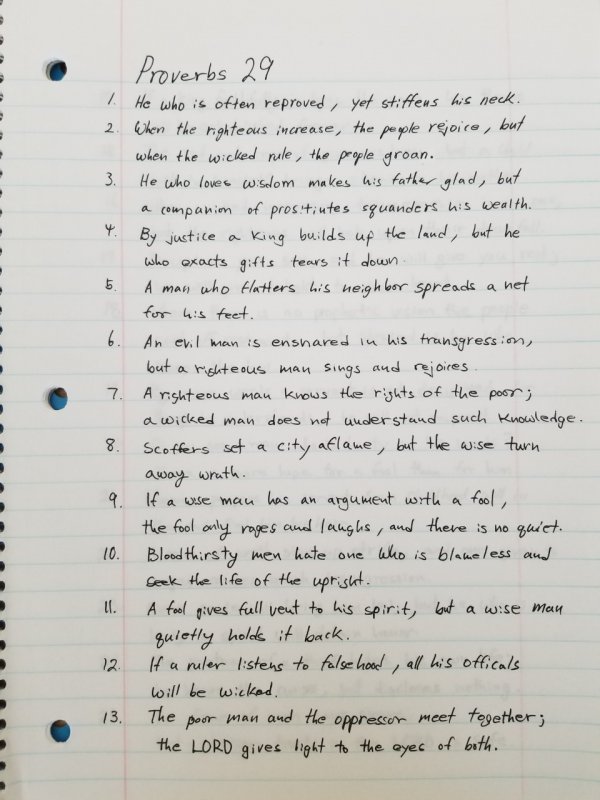 Proverbs 29
1. He who is often reproved, yet stiffens his neck.
2. When the righteous increase, the people rejoice, but
when the wicked rule, the people groan.
3. He who loves wisdom makes his father glad, but
a companion of prostiutes squanders his wealth.
4. By justice a king builds up the land, but he
who exacts gifts tears it down.
5. A man who flatters his neighbor spreads a net
for his feet.
6. An evil man is ensnared in his transgression,
but a righteous man sings and rejoices.
7. A righteous man knows the rights of the poor;
a wicked man does not understand such knowledge.
8. Scoffers set a city aflame, but the wise turn
away wrath.
9. If a wise man has an argument with a fool,
the fool only rages and laughs, and there is no quiet.
10. Bloodthirsty men hate one who is blameless and
seek the life of the upright.
11. A fool gives full vent to his spirit, but a wise man
quietly holds it back.
12. If a ruler listens to falsehood, all his officals
will be wicked.
13. The poor man and the oppressor meet together;
the LORD gives light to the eyes of both.